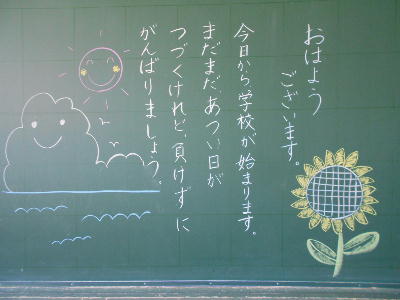 おはよう
ございます。
今日から学校が始まります。
まだまだ、あつい日が
つづくけれど、負けずに
がんばりましょう。